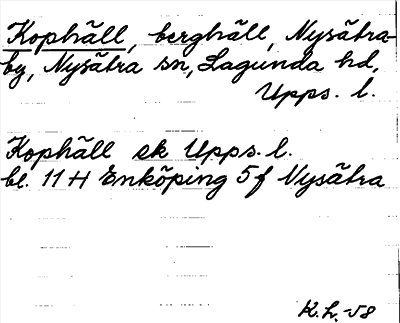 Kophäll, berghäll, Nysätra-
by, Nysätra sn, Lagunda hd,
Upps. l.
Kophäll ek Upps. l.
bl. 11 H Enköping 5 f Nysätra
K.L. -58